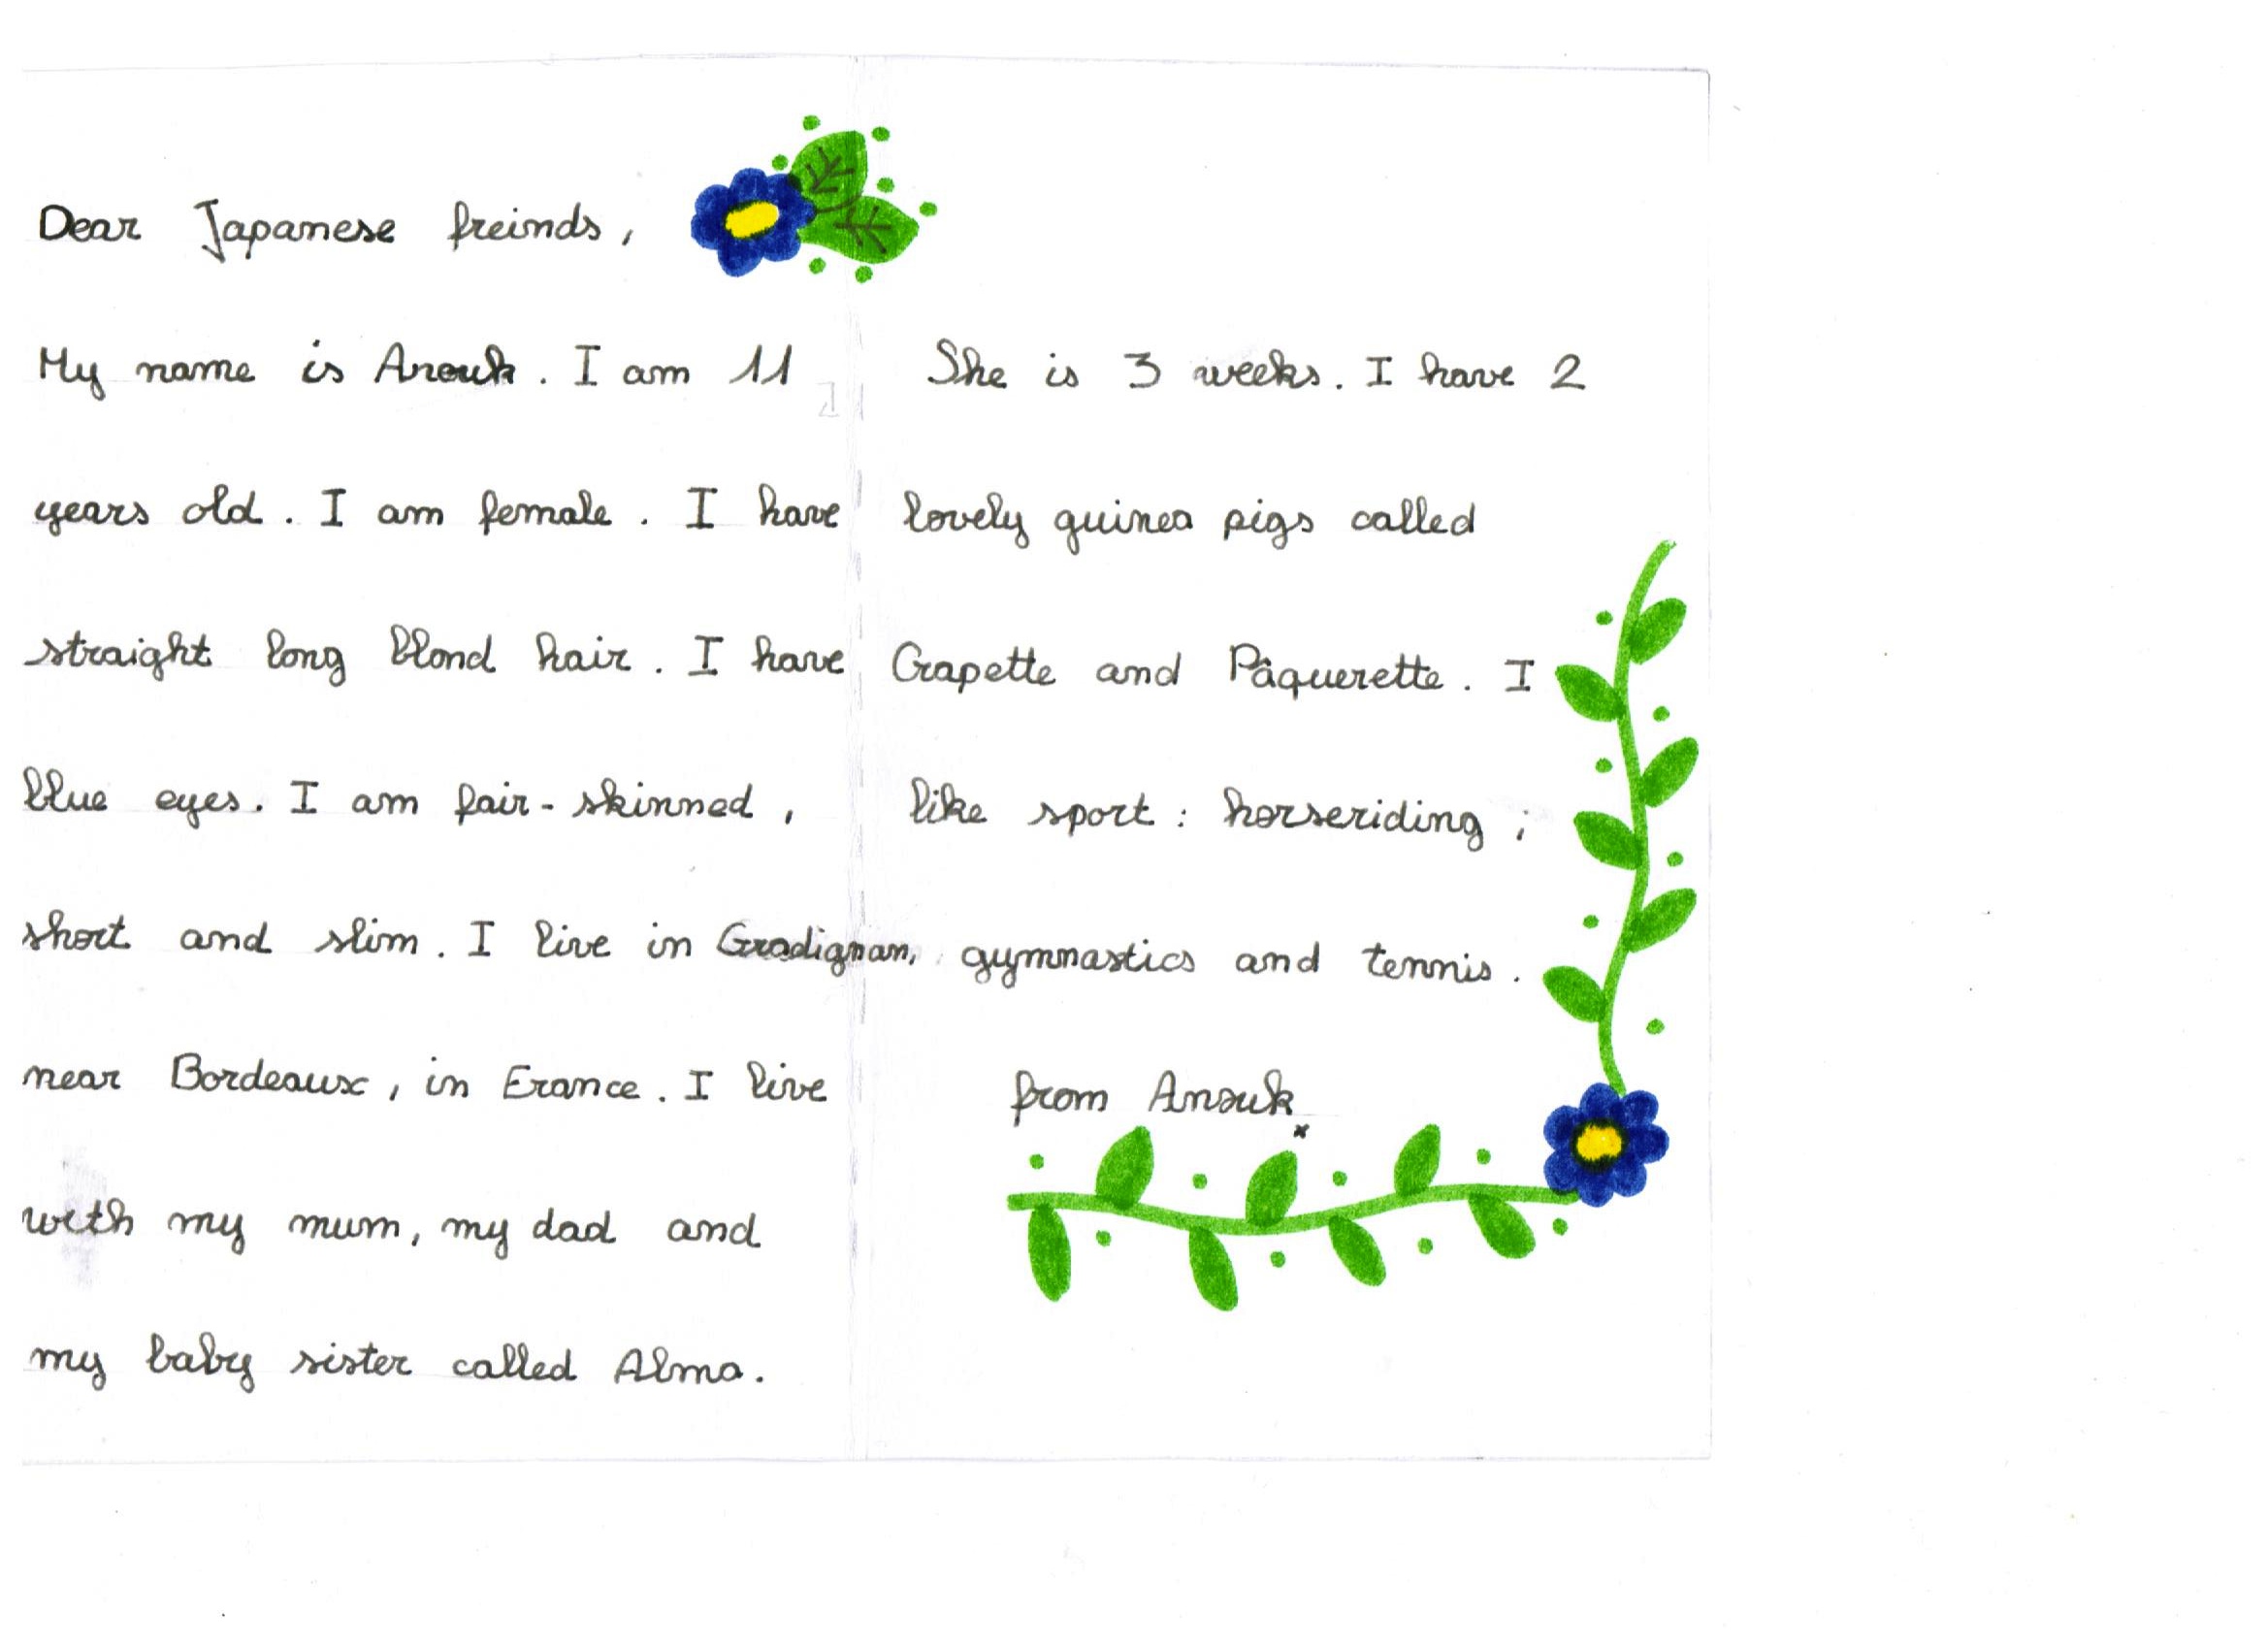 Dear Japanese freinds,
My name is Anouk. I am 11
years old. I am female. I have
straight long blond hair. I have
blue eyes. I am fair-skinned,
short and slim. I live in Gradignan,
near Bordeaux, in France. I live
with my mum, my dad and
my baby sister called Alma.
She is 3 weeks. I have 2
lovely guinea pigs called
Crapette and Pâquerette. I
like sport: horseriding;
gymnastics and tennis.
from Anouk